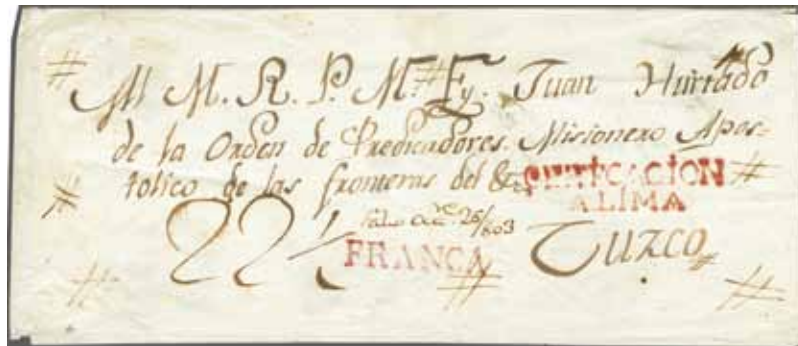 Al M. R. P. M. Fy. Juan Hurtado
de la Orden de Predicadores. Misionero Apos-
tolico de las fronteras del &
CERTIFICACION
A LIMA
22 1/2
28/803
FRANCA
Cuzco